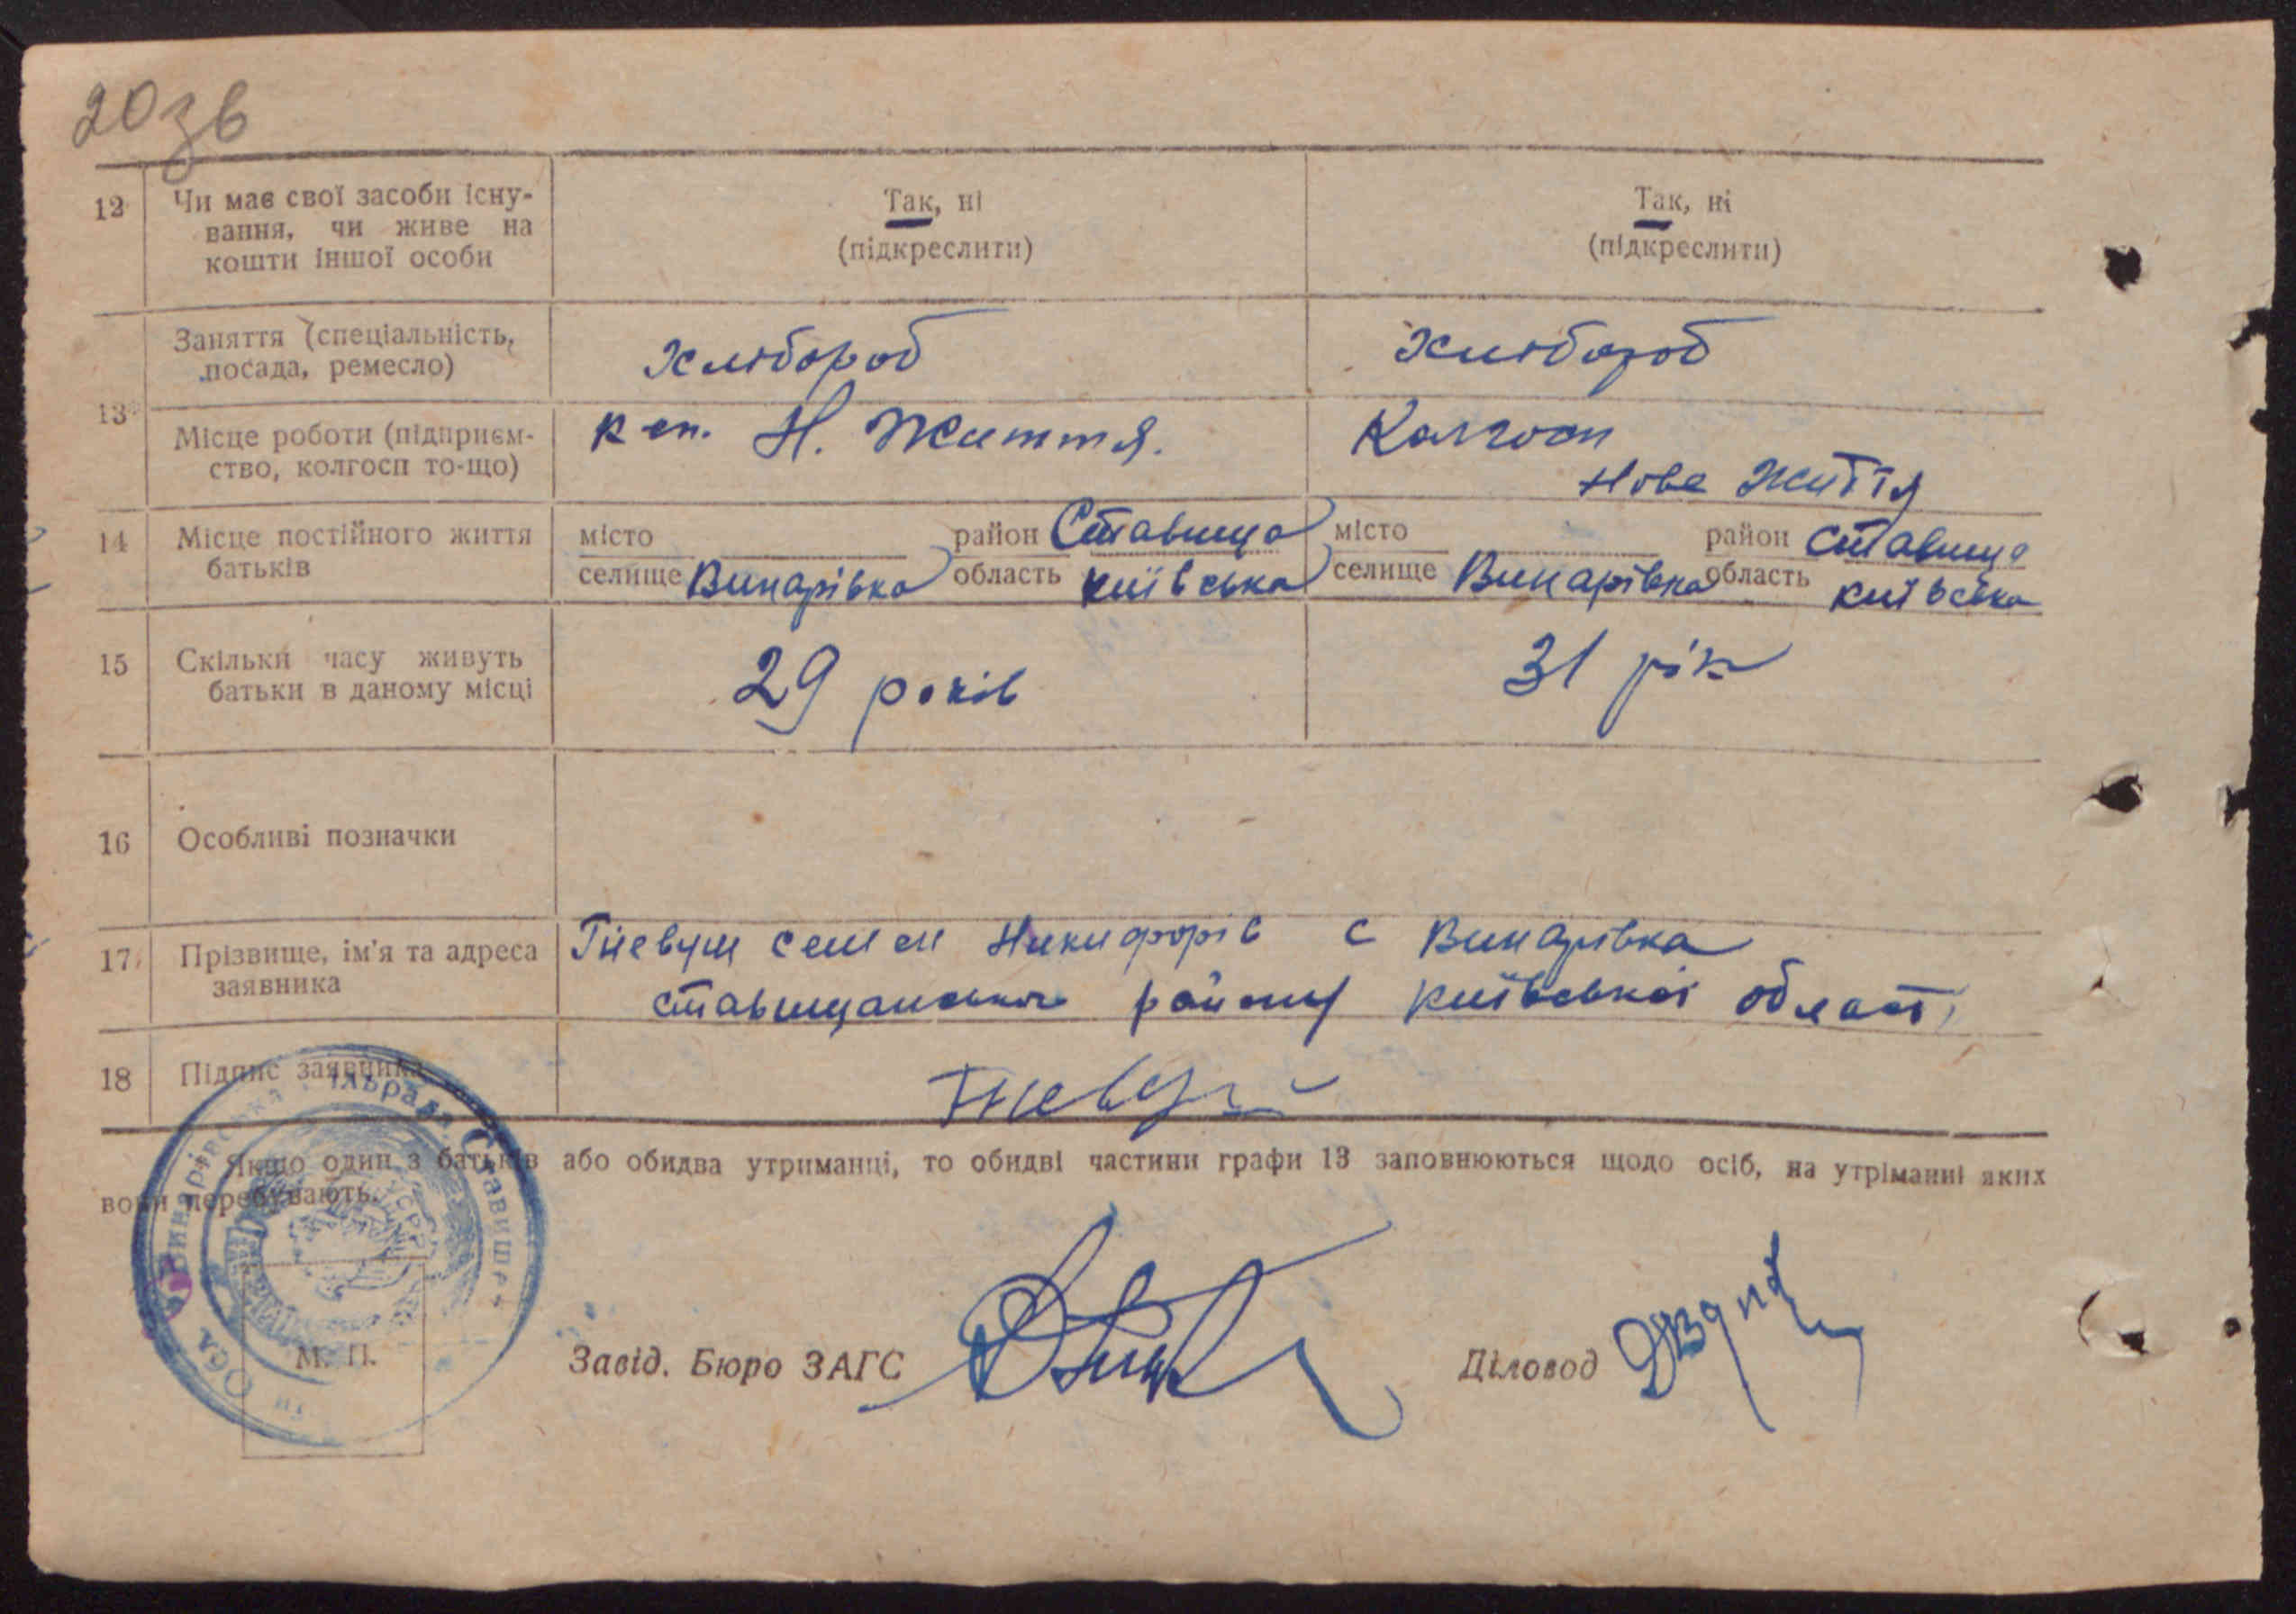 20зв
12 Чи має свої засоби існу- Так, ні Так, ні
вання, чи живе на (підкреслити) (підкреслити)
кошти іншої особи
Заняття (спеціальність, хлібороб хлібороб
посада, ремесло)
13
Місце роботи (підприєм- Н. Життя. Колгосп
ство, колгосп то-що) Нове Життя
14 Місце постійного життя місто район Ставище місто район Ставище
батьків селище Винарівка область київська селище Винарівка область київська
15 Скільки часу живуть 29 років 31 рік
батьки в даному місці
16 Особливі позначки
17 Прізвище, ім'я та адреса Гневуш семен Никифорів с Винарівка
заявника ставищанського району київської області
18 Підпис заявника
Якщо один з батьків або обидва утриманці, то обидві частини графи 13 заповнюються щодо осіб, на утріманні яких
вони перебувають.
М. П.
Завід. Бюро ЗАГС Діловод